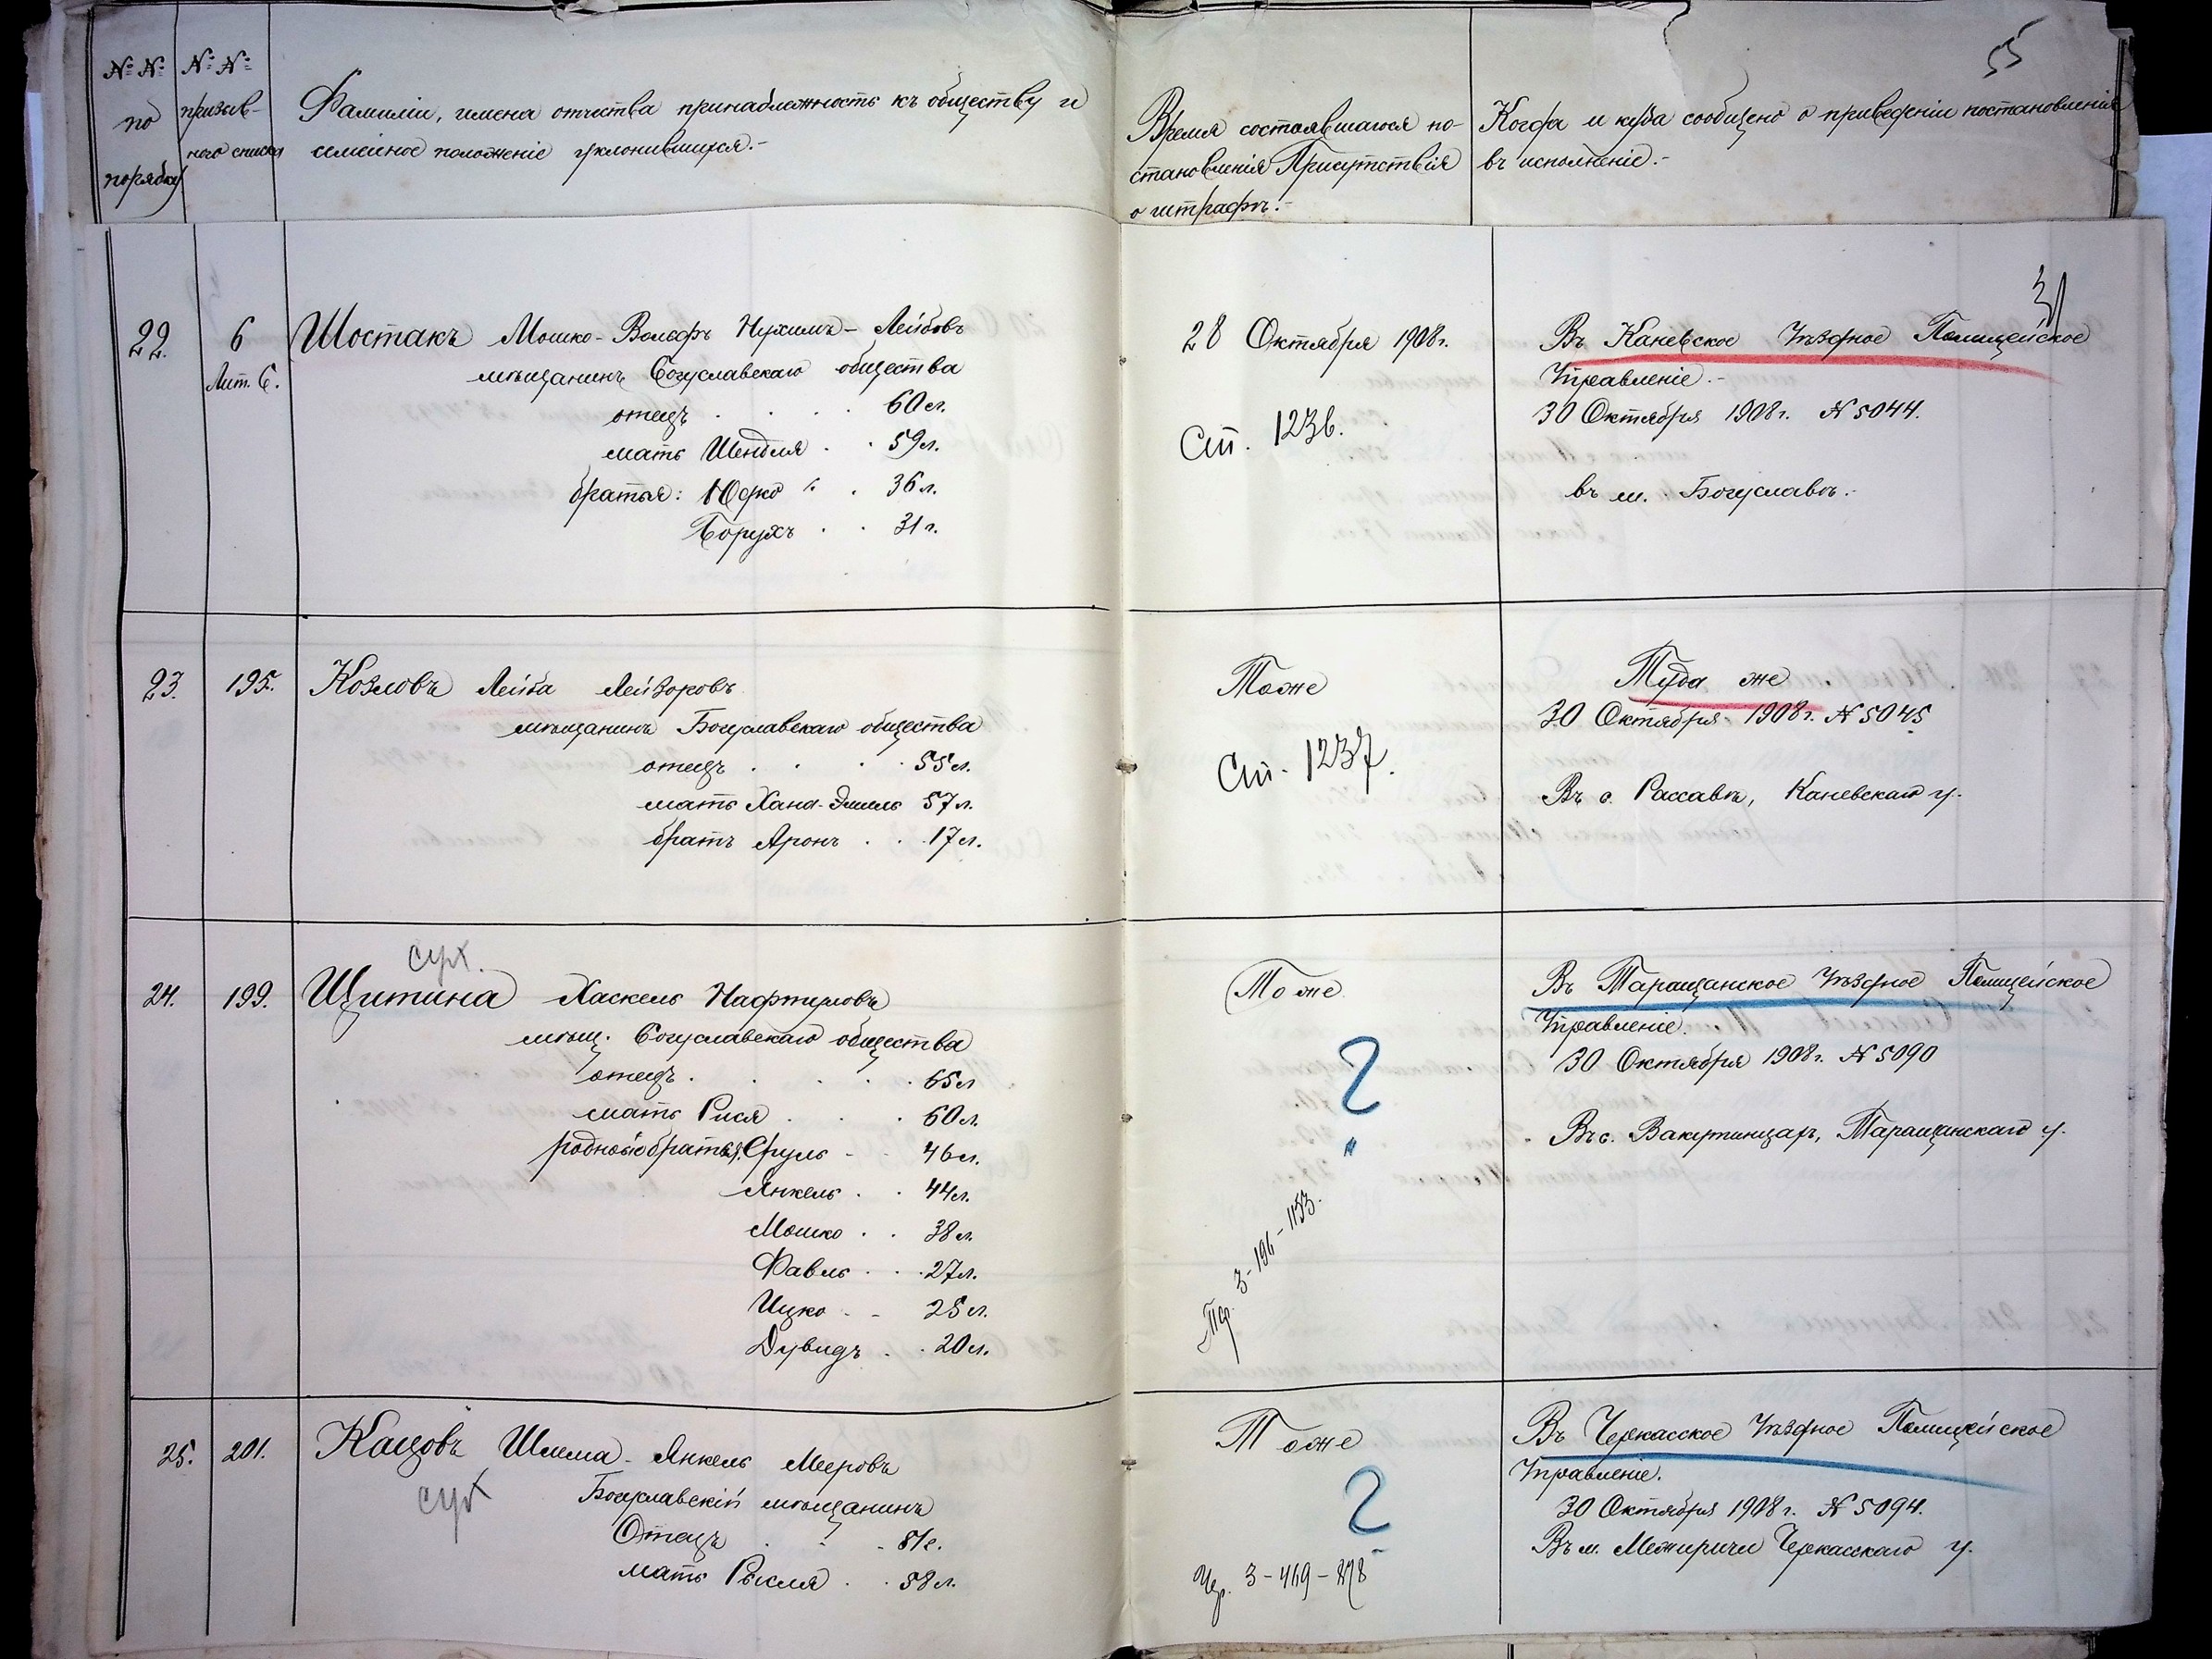 55
№№ по порядку
№№ призыв-
наго списка
Фамиліи, имена отчества принадлежность къ обществу и
семейное положеніе уклонившихся.-
Время состоявшагося по-
становленія Присутствія
о штрафѣ.-
Когда и куда сообщено о приведеніи постановленія
въ исполненіе.-
22. 6 Лит. Б.
Шостакъ Мошко-Вольфъ Нухимъ-Лейбовъ
мѣщанинъ Богуславскаго общества
отецъ . . . . 60 л.
мать Шендля . . 59 л.
братья: Юдко . . 36 л.
Борухъ . . 31 г.
28 Октября 1908 г.
Ст. 1236.
Въ Каневское Уѣздное Полицейское
Управленіе.-
30 Октября 1908 г. № 5044.
въ м. Богуславѣ.-
23. 195.
Козловъ Лейба Лейзоровъ
мѣщанинъ Богуславскаго общества
отецъ . . . . 55 л.
мать Хана-Эмиль 57 л.
братъ Аронъ . . 17 л.
Тоже
Ст. 1237.
Туда же
30 Октября 1908 г. № 5045
Въ с. Рассавѣ, Каневскаго у.
24. 199.
Щитина Хаскель Нафтуловъ
мѣщ. Богуславскаго общества
отецъ . . . . 65 л
мать Рися . . . 60 л.
родные братья: Сруль - - 46 л.
Янкель . . 44 л.
Мошко . . 38 л.
Фавль . . . 27 л.
Ицко . - 25 л.
Дувидъ . . 20 л.
Тоже
2
3-196-1153.
Въ Таращанское Уѣздное Полицейское
Управленіе.
30 Октября 1908 г. № 5090
Въ с. Вакутинцахъ, Таращанскаго у.
25. 201.
Кацовъ Шлема-Янкель Мееровъ
Богуславскій мѣщанинъ
Отецъ . . . 81 г.
мать Рыкля . . 58 л.
Тоже
2
Чер. 3-469-878
Въ Черкасское Уѣздное Полицейское
Управленіе.
30 Октября 1908 г. № 5094.
Въ м. Межиричи Черкасскаго у.